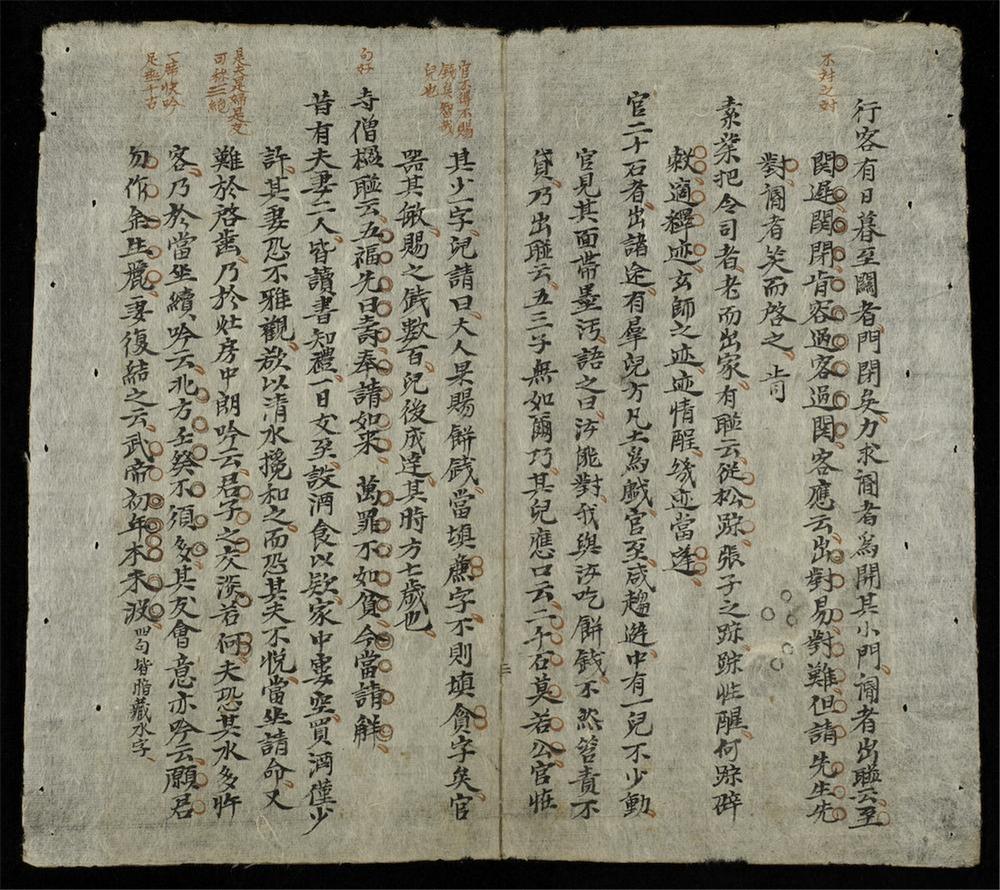 不対之対
行客有日暮至關者門閉矣力求阍者爲開其小門阍者出聯云至
関遅関閉肯容過客過関客應云出對易對難但請先生先
對阍者笑而啓之 肯
素業把令司者老而出家有聯云從松踪張子之踪踪性醒何踪碎
敕適禪迹玄師之迹迹情醒幾迹當逢
官二千石者出諸途有羣兒方凡土爲戲官至咸趨避中有一兒不少動
官見其面帶墨污語之曰汝能對我與汝吃餅錢不然笞責不
貸乃出聯云五三子無如爾巧其兒應口云二千石莫若公官怪
官不得不賜
錢矣智哉
兒也
其少一字兒請曰大人果賜餅錢當填廉字不則填貪字矣官
器其儆賜之錢數百兒後成達其時方七歲也
句好
寺僧楹聯云五福先曰壽奉請如来 萬罪不如貧今當請觧
昔有夫妻二人皆讀書知禮一日友至設酒食以欵家中屢空買酒僅少
許其妻恐不雅觀欲以清水攙和之而恐其夫不悦當坐請命又
是夫是婦是友
可称三絶
難於啓齒乃於灶房中朗吟云君子之交淡若何夫恐其水多忤
一時快吟
足垂千古
客乃於當坐續吟云北方壬癸不須多其友會意亦吟云願君
勿作金生麗妻復結之云武帝初年本未波四句皆暗藏水字